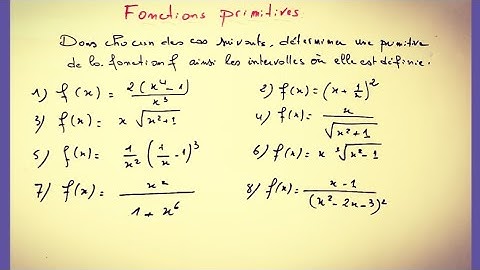 Fonctions primitives
Dans chacun des cas suivants, déterminer une primitive
de la fonction f ainsi les intervalles où elle est définie.
1) f(x) = 2(x⁴-1)/x³ 2) f(x) = (x + 1/x)²
3) f(x) = x √(x²+1) 4) f(x) = x/√(x²+1)
5) f(x) = 1/x² (1/x - 1)³ 6) f(x) = x ³√(x²-1)
7) f(x) = x²/(1+x⁶) 8) f(x) = x-1/(x²-2x-3)²